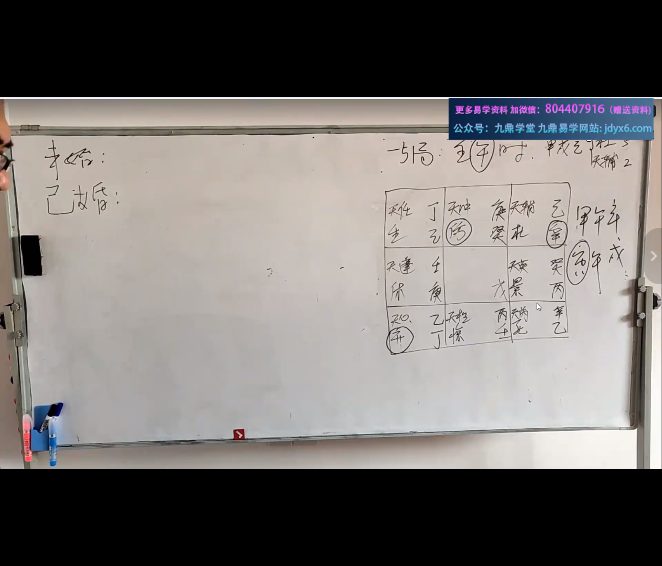 更多易学资料 加微信：804407916（赠送资料）
公众号：九鼎学堂 九鼎易学网站：jdyx6.com
未婚：
已婚：
局：壬午时
天辅 2
天任 丁 天冲 庚 天辅 己
生 己 伤 癸 杜 辛
天蓬 壬 天英 癸
休 庚 戊 景 丙
天心 乙 天柱 丙 天芮 辛
开 丁 惊 壬 死 乙
甲午辛
寅午戌